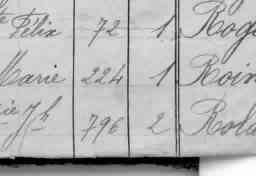 Félix 72 1 Rog
Marie 224 1 Roin
rie Jh 796 2 Rola